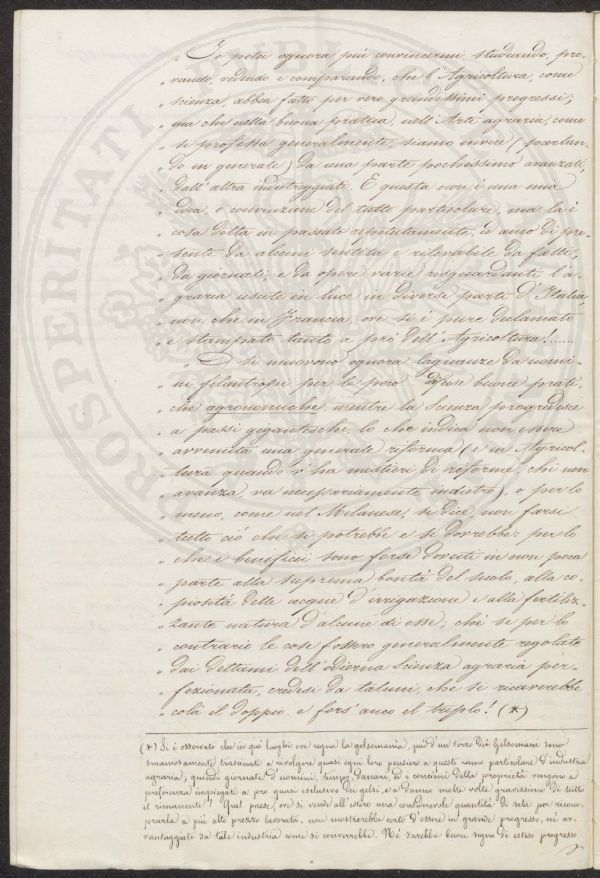 „ Io potei ognora più convincermi studiando, pro-
„ vando, vedendo e comparando, che l'Agricoltura, come
„ scienza, abbia fatto per vero grandissimi progressi;
„ ma che nella buona pratica, nell'Arte agraria, come
„ si professa generalmente, siamo invece (parlan-
„ do in generale) da una parte pochissimo avanzati,
„ dall'altra indietreggiati. E questa non è una mia
„ idea, o convinzione del tutto particolare, ma la è
„ cosa detta in passato repetutamente, ed anco di pre-
„ sente da alcuni sentita e rilevabile da fatti,
„ da giornali e da opere varie risguardanti l'a-
„ graria uscite in luce in diverse parti d'Italia,
„ non che in Francia, ove si è pure declamato
„ e stampato tanto a prò dell'Agricoltura!......
„ E si muovono ognora lagnanze da uomi-
„ ni filantropi per le poco diffuse buone prati-
„ che agronomiche, mentre la Scienza progredisce
„ a passi giganteschi, lo che indica non essere
„ avvenuta una generale riforma (e in Agricol-
„ tura quando v'ha mestieri di riforme, chi non
„ avanza, va necessariamente indietro), o per lo
„ meno, come nel Milanese, si dice, non farsi
„ tutto ciò che si potrebbe e si dovrebbe: per lo
„ che i beneficii sono forse dovuti in non poca
„ parte alla suprema bontà del suolo, alla co-
„ piosità delle acque d'irrigazione e alla fertiliz-
„ zante natura d'alcune di esse; chè se per lo
„ contrario le cose fossero generalmente regolate
„ dai dettami dell'odierna Scienza agraria per-
„ fezionata, credesi da taluni, che si ricaverebbe
„ colà il doppio e fors'anco il triplo! (*)
(*) Si è osservato che in que' luoghi ove regna la gelsomania, più d'un terzo dei Gelsomani sono
smaniosamente trascinati a rivolgere quasi ogni loro pensiero a questo ramo particolare d'industria
agraria; quindi giornate d'uomini, tempo, danari, ed i concimi della proprietà vengono a
preferenza impiegati a pro quasi esclusivo dei gelsi, e a danno molte volte gravissimo di tutto
il rimanente. Quel paese, ove si vende all'estero una considerevole quantità di seta per ricom-
prarla a più alto prezzo lavorata, non mostrerebbe certo d'essere in grande progresso, nè av-
vantaggiato da tale industria come si converrebbe. Nè sarebbe buon segno di esteso progresso
PROSPERITATI PUBLICAE